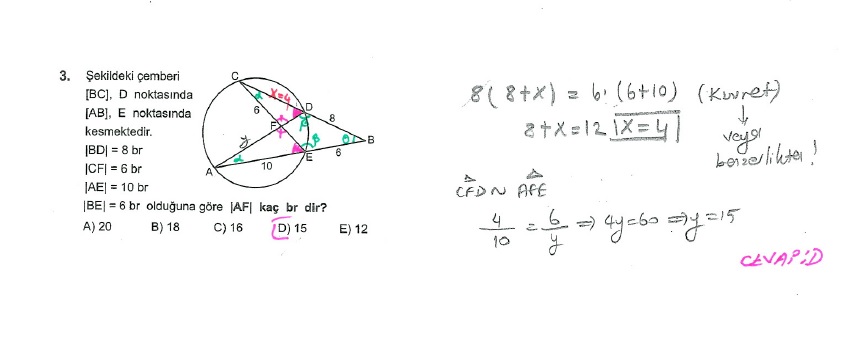 3. Şekildeki çemberi
[BC], D noktasında
[AB], E noktasında
kesmektedir.
|BD| = 8 br
|CF| = 6 br
|AE| = 10 br
|BE| = 6 br olduğuna göre |AF| kaç br dir?
A) 20 B) 18 C) 16 D) 15 E) 12
C
α x=4
D
6
8
F
y
β
B
θ
α
β
A
10
E
6
8(8+x) = 6·(6+10) (Kuvvet)
8+x=12 x=4
veya
benzerlikten!
CFD ~ AFE
4/10 = 6/y ⇒ 4y=60 ⇒ y=15
CEVAP:D